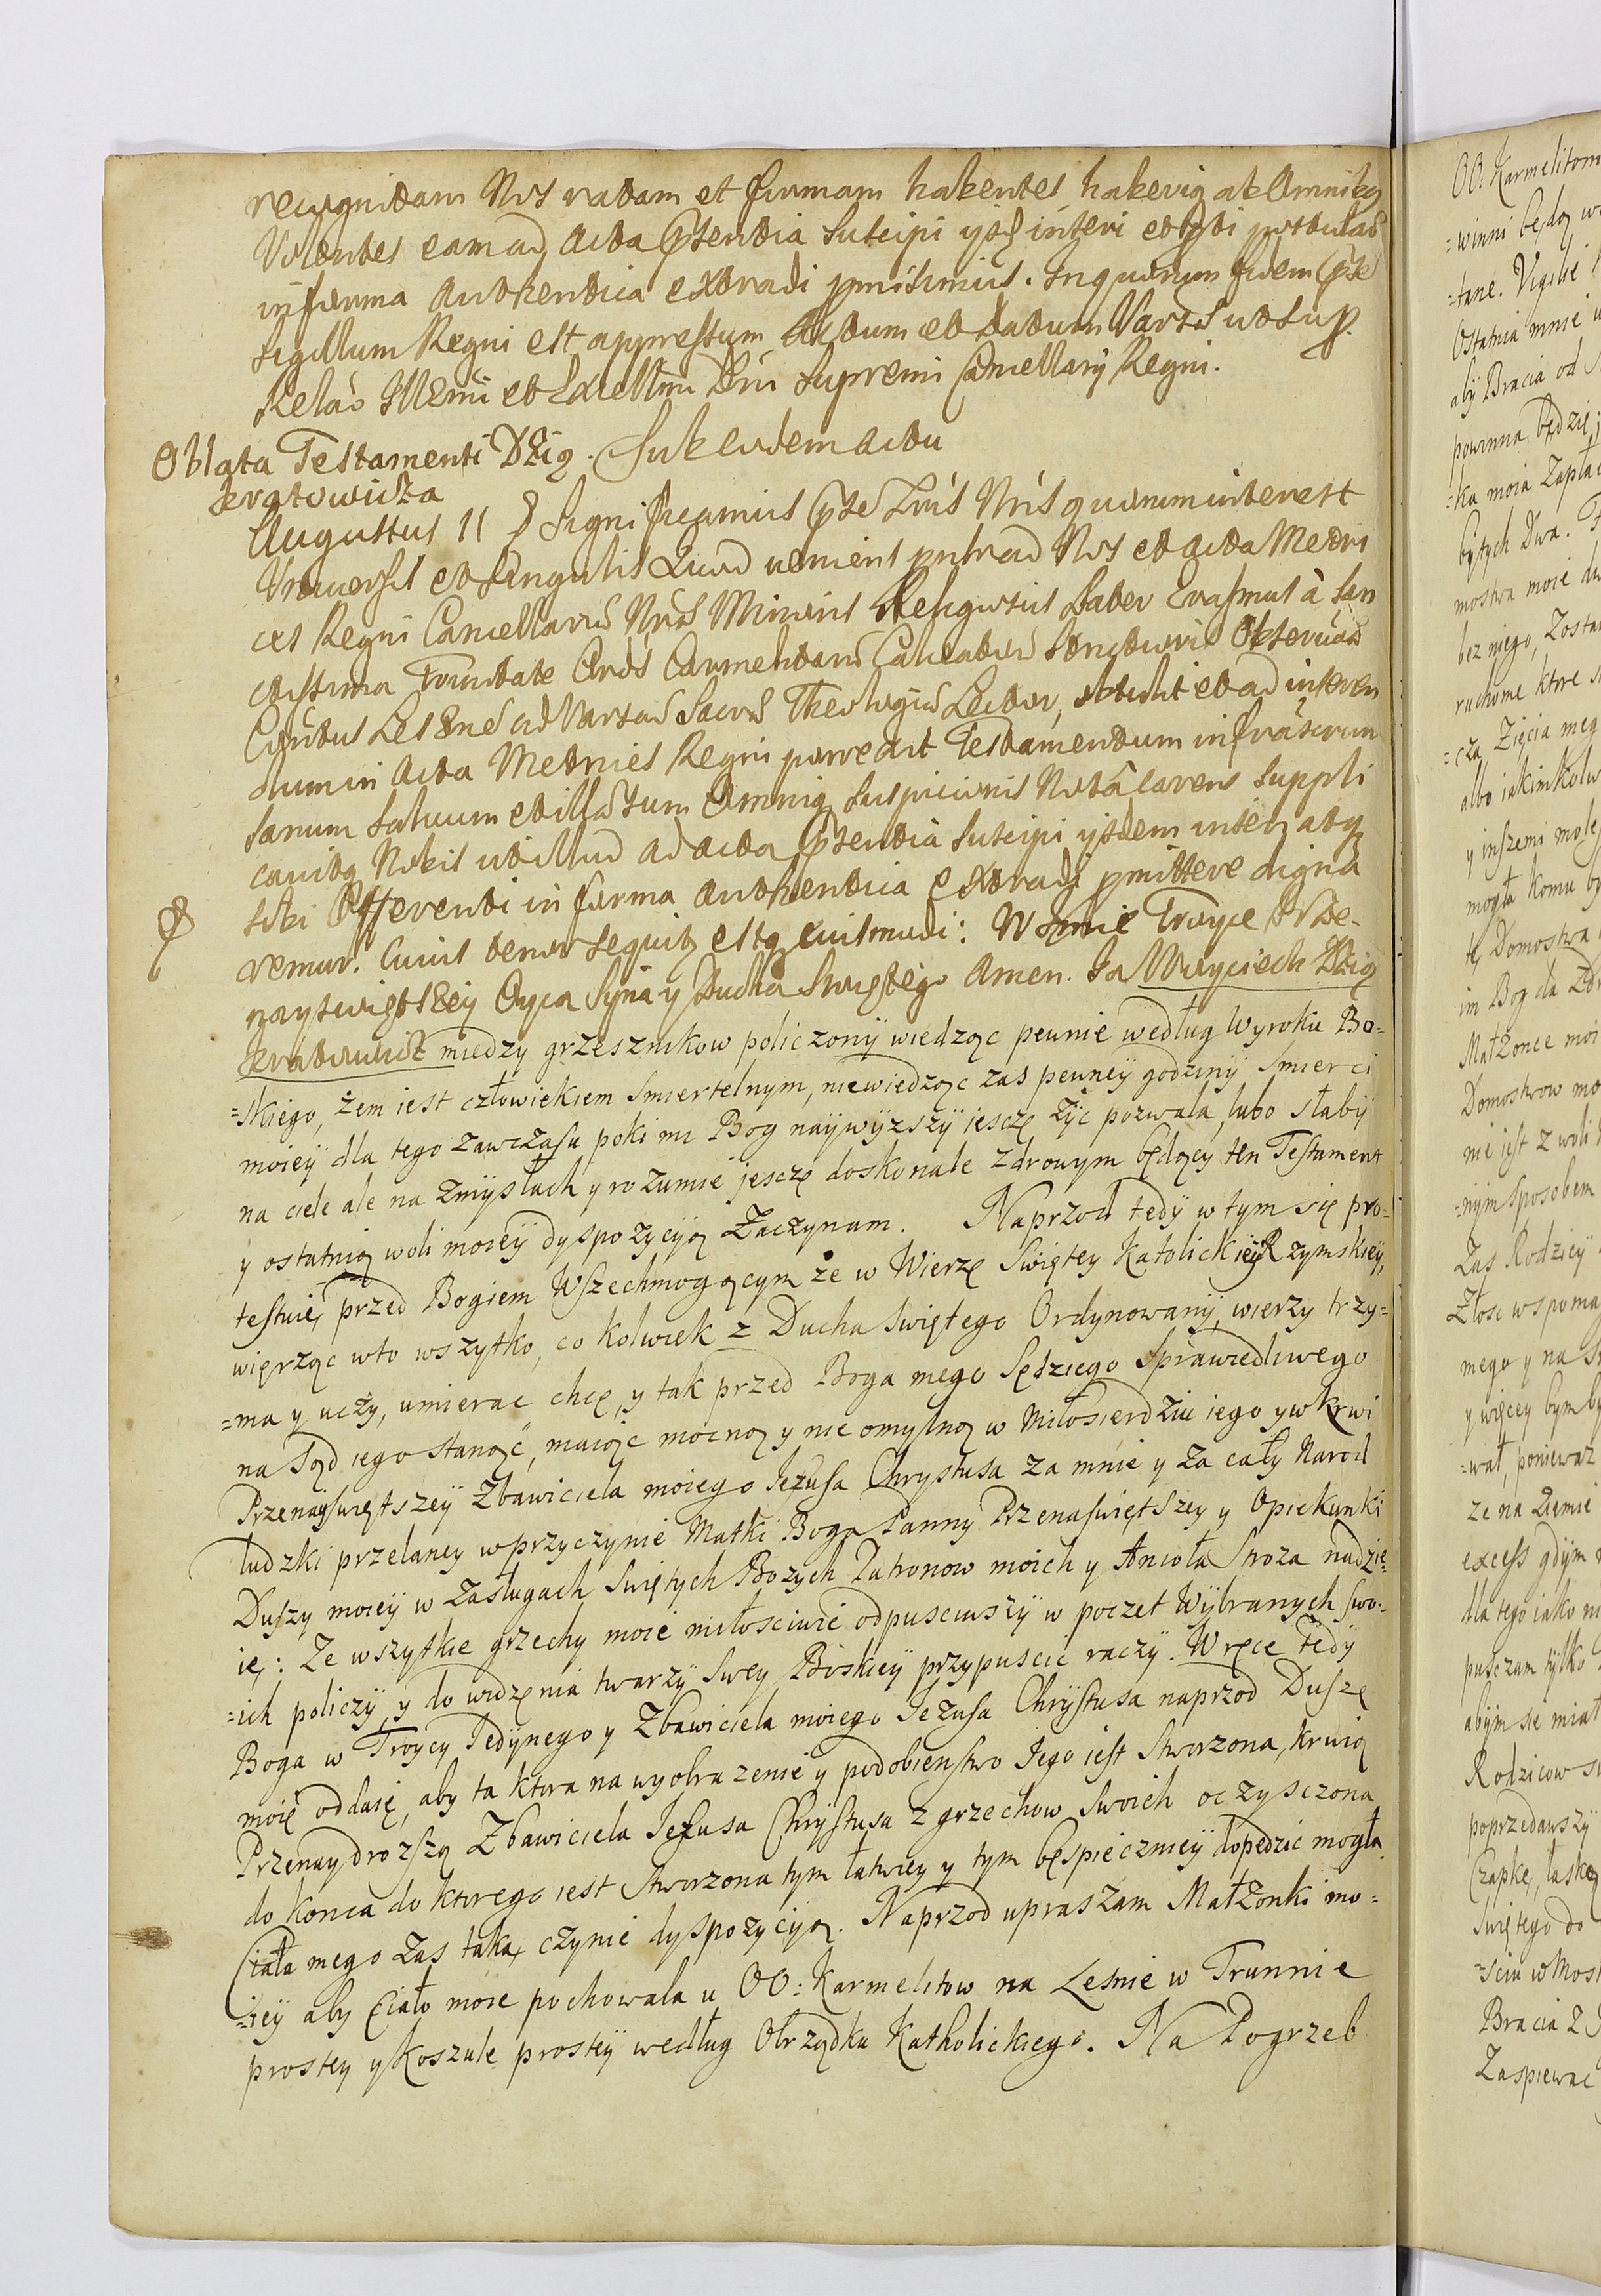 recognitam Nos ratam et firmam habentes, haberiq ab Omnibq
Volentes eam ad Acta pntentia Suscipi
in forma Authentica extradi pmisimus. In quorum fidem pnte
Sigillum Regni est appressum. Actum et Datum Vars ut sup.
Relao Illmi et Excellmi Dni Supremi Cancellarij Regni.
Oblata Testamenti Dzię- Sub eodem actu
kratowicza
Augustus II Significamus pnte Lris Nris quorum interest
Universis et Singulis Quod veniens ad Nos et Acta Metri
ces Regni Cancellaria Nra Minoris Religiosus Pater Erasmus à San
ctissima Trinitate Ords Carmelitaru Calceatoru Strictioris Observan
Contus Lesnen ad Varsaviam Sacra Theologia Lector, obtulit et ad inseren
dum in Acta Metrices Regni porrexit Testamentum infrascrip
Sanum Salvum et illasum Omniq Suspicionis Nota carens Suppli
cavitq Nobis ut illud ad Acta pntentia Suscipi ijsdem inseri atq
sibi Offerenti in forma Authentica extradi pmittere digna
remur. Cuius tenor sequitq estq eiusmodi: W Imie Troyce Prze-
nayswiętszey Oyca Syna y Ducha Swiętego Amen. Ja Woyciech Dzię
kratowicz miedzy grzesznikow policzonÿ wiedząc pewnie według Wyroku Bo=
=skiego, żem iest człowiekiem Smiertelnym, niewiedząc zas pewneÿ godzinÿ Smierci
moieÿ dla tego zawczasu poki mi Bog naÿwÿzszÿ iescze żÿc pozwala, lubo słabÿ
na ciele ale na zmÿsłach y rozumie jescze doskonale zdrowym będący ten Testament
y ostatnią woli moieÿ dyspozycyą Zaczynam. Naprzod tedÿ w tym się pro=
testuię przed Bogiem Wszechmogącym że w Wierze Swiętey KatolickieÿRzymskieÿ,
wierząc wto wszytko, co kolwiek z Ducha Swiętego Ordynowanÿ, wierzy trzy=
=ma y uczy, umierac chcę, y tak przed Boga mego Sędziego Sprawiedliwego
na Sąd iego stanąć, maiąc mocną y nie omylną w Miłosierdziu iego y w krwi
Przenaÿswiętszeÿ Zbawiciela moiego Jezusa Chrystusa za mnie y za cały Narod
ludzki przelaney w przyczynie Matki Boga Panny Przenaswiętszey y Opiekunki
Duszy moieÿ w Zasługach Swiętych Bozych Patronow moich y Anioła Stroza nadzie=
ię: Ze wszytkie grzechy moie miłosciwie odpusciwszÿ w poczet Wÿbranych swo=
=ich policzÿ, y do widzenia twarzÿ swey Boskieÿ przypuscic raczÿ. W ręce tedÿ
Boga w Troycy Jedÿnego y Zbawiciela moiego Jezusa Chrÿstusa naprzod Duszę
moię oddaię, aby ta ktora na wyobrazenie y podobienstwo Jego iest stworzona, krwią
Przenaydrozszą Zbawiciela Jezusa Chrÿstusa z grzechow swoich oczysczona
do konca do ktorego iest stworzona tym łatwiey y tym bespieczniey dopędzic mogła.
Ciała mego zas taką czynie dyspozycyą. Naprzod upraszam Małżonki mo=
=ieÿ aby Ciało moie pochowala u OO: Karmelitow na Lesnie w Trunnie
prostey y koszule prosteÿ według Obrządku Katholickiego. Na Pogrzeb
OO. Karmelitom
=winni będą
=tane. Vigilie
Ostatnia mnie
abÿ Bracia od
powinna będzie
=ka moia Zapłac
bÿtych Dwa.
mostwa moie
bez niego, Zosta
ruchome ktore
=cza, Zięcia meg
albo iakimkolw
y inszemi
mogła komu by
te Domostwa
im Bog da
Małżonce moi
Domostwow mo
nie iest z woli
=nÿm sposobem
Zas Rodzicÿ
Złosc wspoma
mego y na
y więcey bym
=wał, poniewaz
ze na Ziemie
excess gdÿm
dla tego iako
pusczam tylko
abÿm sie miał
Rodzicow
poprzedawszÿ
Czapkę, laskę
Swiętego do
=sciu w Mos
Bracia Z
Zaspiewac